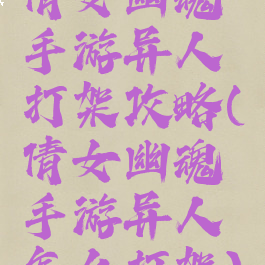 倩女幽魂
手游异人
打架攻略(
倩女幽魂
手游异人
怎么打架)